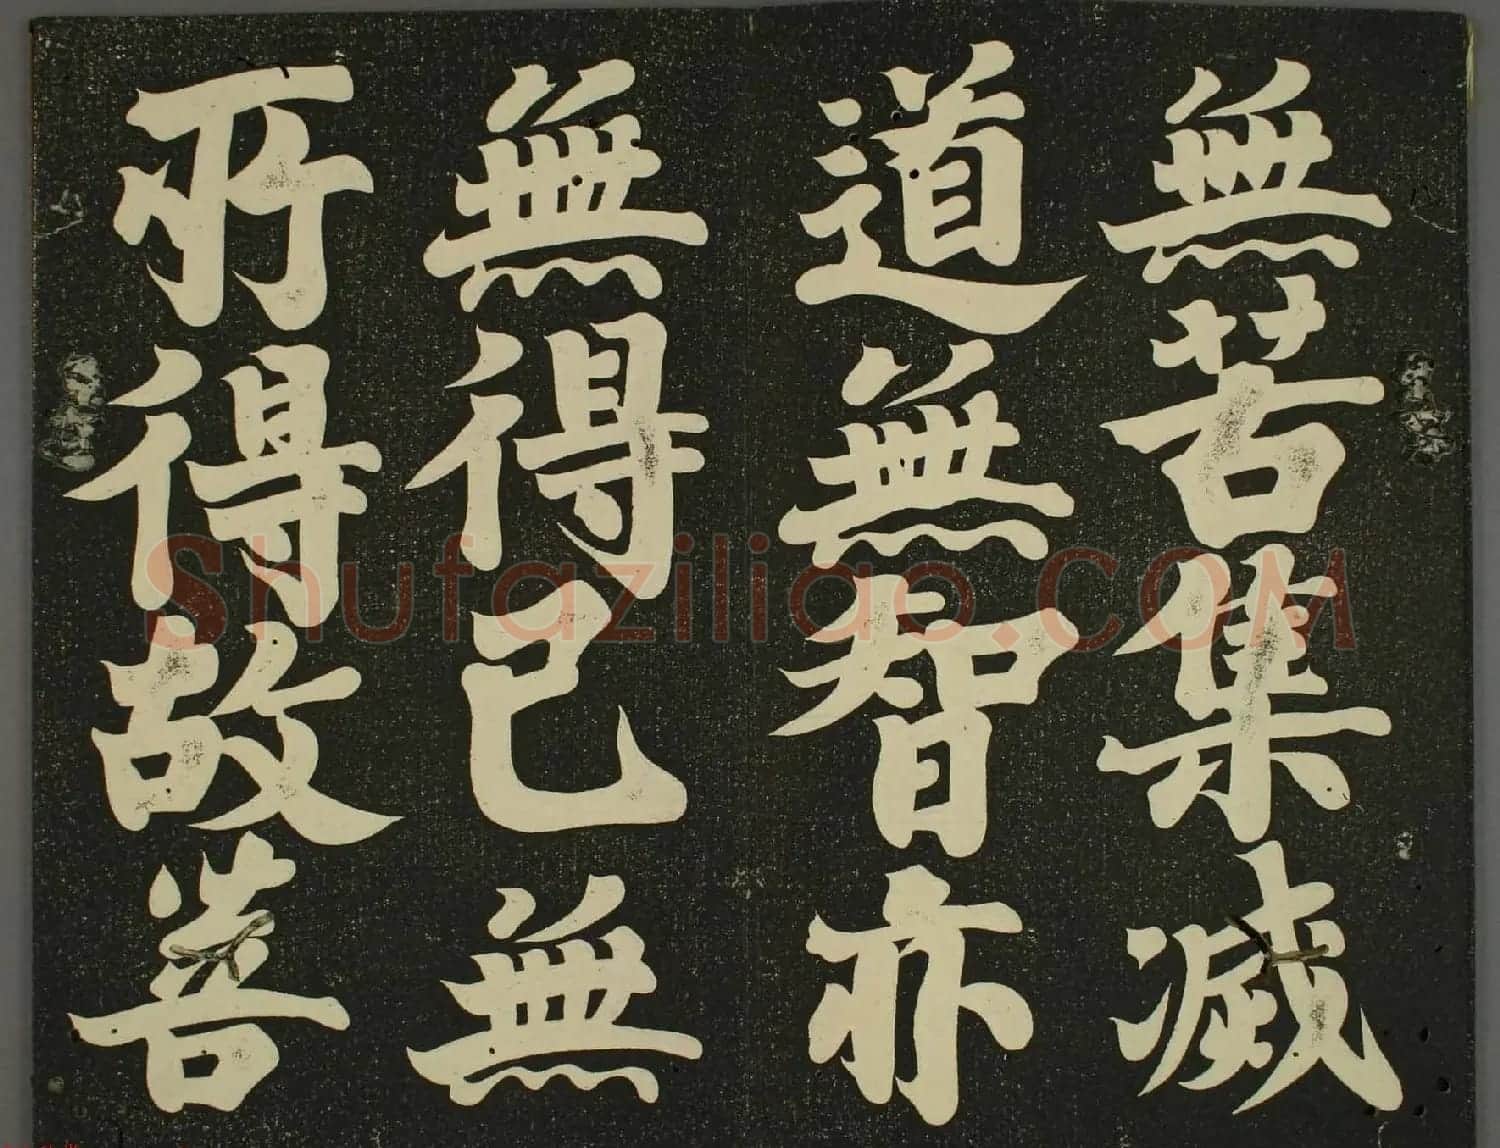 無苦集滅
道無智亦
無得已無
所得故菩
Shufaziliao.COM